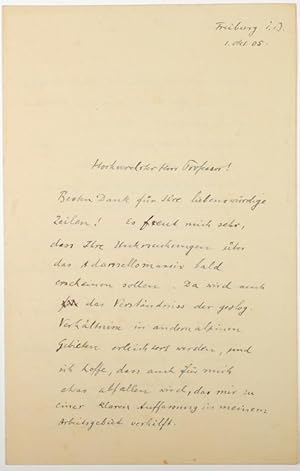 Freiburg i. B.
1. Okt. 05.
Hochverehrter Herr Professor!
Besten Dank für Ihre liebenswürdige
Zeilen! Es freut mich sehr,
dass Ihre Untersuchungen über
das Adamellomassiv bald
erscheinen sollen. Da wird auch
das Verständniss der geolog.
Verhältnisse in andern alpinen
Gebieten erleichtert werden, und
ich hoffe, dass auch für mich
etwas abfallen wird, das mir zu
einer klaren Auffassung in meinem
Arbeitsgebiet verhilft.